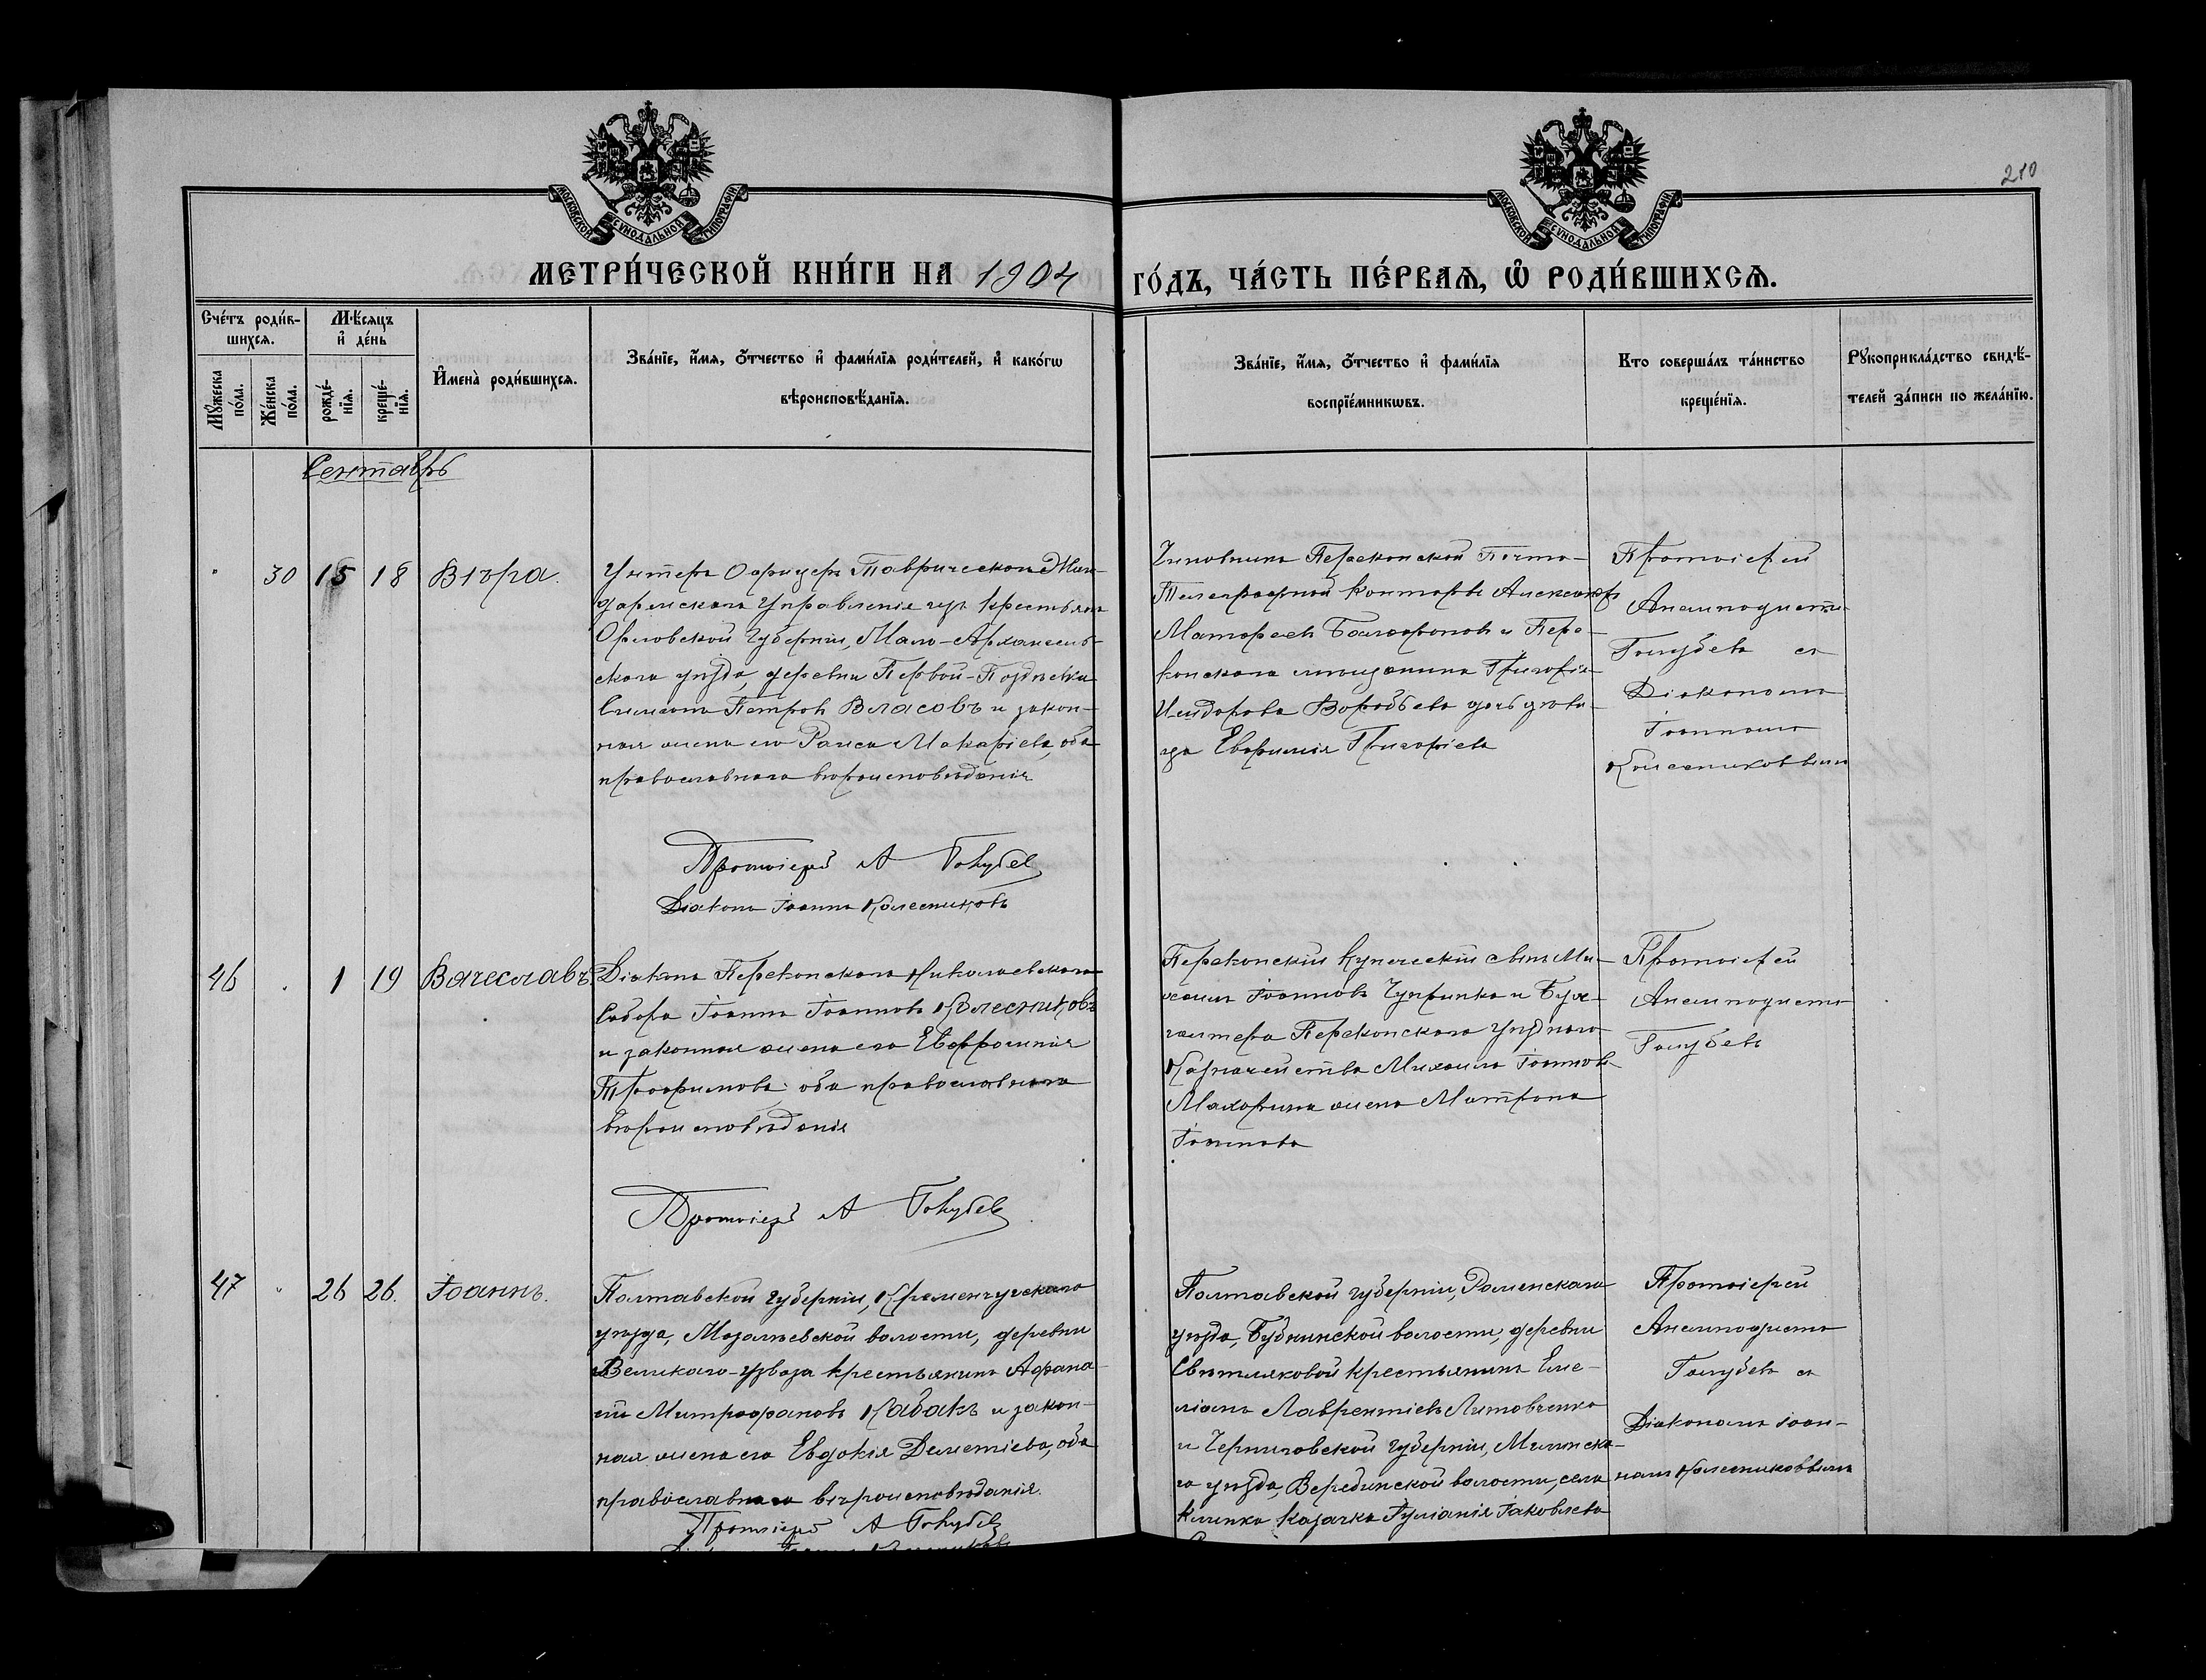 210
МОСКОВСКОЙ СѴНОДАЛЬНОЙ ТИПОГРАФІИ
МОСКОВСКОЙ СѴНОДАЛЬНОЙ ТИПОГРАФІИ
МЕТРИ́ЧЕСКОЙ КНИ́ГИ НА 1904 ГО́ДЪ, ЧА́СТЬ ПЕ́РВАѦ, Ѡ҆ РОДИ́ВШИХСѦ.
Сче́тъ роди́в-
шихсѧ.
Мꙋ́жеска по́ла.
Же́нска по́ла.
Мѣ́сяцъ
и҆ де́нь
рожде́-
нїѧ.
креще́-
нїѧ.
И҆мена̀ роди́вшихсѧ.
Зва́нїе, и҆́мѧ, ѻ҆́тчество и҆ фами́лїѧ роди́телей, и҆ како́гѡ
вѣроисповѣ́данїѧ.
Зва́нїе, и҆́мѧ, ѻ҆́тчество и҆ фами́лїѧ
воспрїе́мникѡвъ.
Кто соверша́лъ та́инство
креще́нїѧ.
Рꙋкоприкла́дство свидѣ́-
телей за́писи по жела́нїю.
Сентябрь
30 15 18 Вѣра.
Унтеръ Офицеръ Таврическаго Жан-
дармскаго Управленія изъ крестьянъ
Орловской губерніи, Мало-Архангель-
скаго уѣзда, деревни Первой-Поздѣевки
Симеонъ Петровъ Власовъ и закон-
ная жена его Раиса Макаріева, оба
православнаго вѣроисповѣданія
Протоіерей А Голубев
Діаконъ Іоаннъ Колесниковъ
Чиновникъ Перекопской Почто-
Телеграфной конторы Александръ
и Пере-
копскаго мѣщанина Григорія
Исидорова Воробьева дочь дѣви-
ца Евфимія Григоріева
Протоіерей
Анемподистъ
Голубевъ съ
Діакономъ
Іоанномъ
Колесниковымъ
46 1 19 Вячеславъ.
Діаконъ Перекопскаго Николаевскаго
Собора Іоаннъ Іоанновъ Колесниковъ
и законная жена его Евфросинія
Трофимова оба православнаго
вѣроисповѣданія
Протоіерей А Голубев
Перекопскій купеческій сынъ Ми-
хаилъ Іоанновъ Чупринка и Бух-
галтера Перекопскаго Уѣзднаго
Казначейства Михаила Іоаннова
Махорина жена Матрона
Іоаннова
Протоіерей
Анемподистъ
Голубевъ
47 26 26. Іоаннъ.
Полтавской губерніи, Кременчугскаго
уѣзда, Мозолѣевской волости, деревни
Великаго-Узвоза крестьянинъ Афана-
сій Митрофановъ Кабакъ и закон-
ная жена его Евдокія Дементіева, оба
православнаго вѣроисповѣданія.
Протоіерей А Голубев
Полтавской губерніи, Роменскаго
уѣзда, деревни
крестьянинъ Еме-
ліанъ Лаврентіевъ Литовченко
и Черниговской губерніи, Мглинска-
го уѣзда, волости, села
казачка Іуліанія Іаковлева
Протоіерей
Анемподистъ
Голубевъ съ
Діакономъ Іоан-
номъ Колесниковымъ